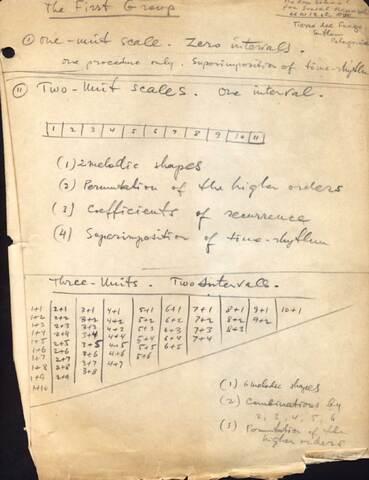 The First Group
① One-unit scale. Zero intervals.
one procedure only. Superimposition of time-rhythm
② Two-Unit scales. One interval.
1 2 3 4 5 6 7 8 9 10 11
(1) 2 melodic shapes
(2) Permutation of the higher orders
(3) Coefficients of recurrence
(4) Superimposition of time-rhythm
Three-Units. Two Intervals.
1+1 2+1 3+1 4+1 5+1 6+1 7+1 8+1 9+1 10+1
1+2 2+2 3+2 4+2 5+2 6+2 7+2 8+2 9+2
1+3 2+3 3+3 4+3 5+3 6+3 7+3 8+3
1+4 2+4 3+4 4+4 5+4 6+4 7+4
1+5 2+5 3+5 4+5 5+5 6+5
1+6 2+6 3+6 4+6 5+6
1+7 2+7 3+7 4+7
1+8 2+8 3+8
1+9 2+9
1+10
(1) 6 melodic shapes
(2) Combinations by
2, 3, 4, 5, 6
(3) Permutation of the
higher orders